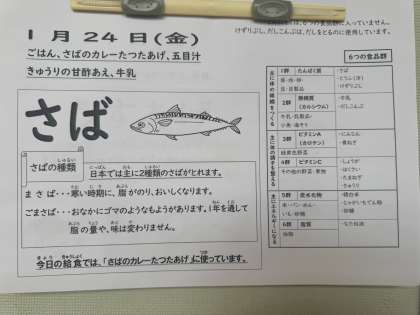 入っていません。
けずりぶし、だしこんぶは、だしをとるのに使用しています。
1月24日(金)
ごはん、さばのカレーたつたあげ、五目汁
きゅうりの甘酢あえ、牛乳
さば
さばの種類
しゅるい
日本では主に2種類のさばがとれます。
まさば・・・寒い時期に、脂がのり、おいしくなります。
ごまさば・・・おなかにゴマのようなもようがあります。1年を通して
脂の量や、味は変わりません。
今日の給食では、「さばのカレーたつたあげ」に使っています。
6つの食品群
主に体の組織をつくる
1群 たんぱく質
魚・肉・卵・
豆・豆製品
・さば
・とうふ(汁)
・けずりぶし
2群 無機質
(カルシウム)
牛乳・乳製品・
小魚・海そう
・牛乳
・だしこんぶ
主に体の調子を整える
3群 ビタミンA
(カロテン)
緑黄色野菜
・にんじん
・青ねぎ
4群 ビタミンC
その他の野菜・果物
・しょうが
・はくさい
・たまねぎ
・きゅうり
主にエネルギーになる
5群 炭水化物
米・パン・めん・
いも・砂糖
・精白米
・じゃがいもでん粉
・砂糖
6群 脂質
油脂
・なたね油